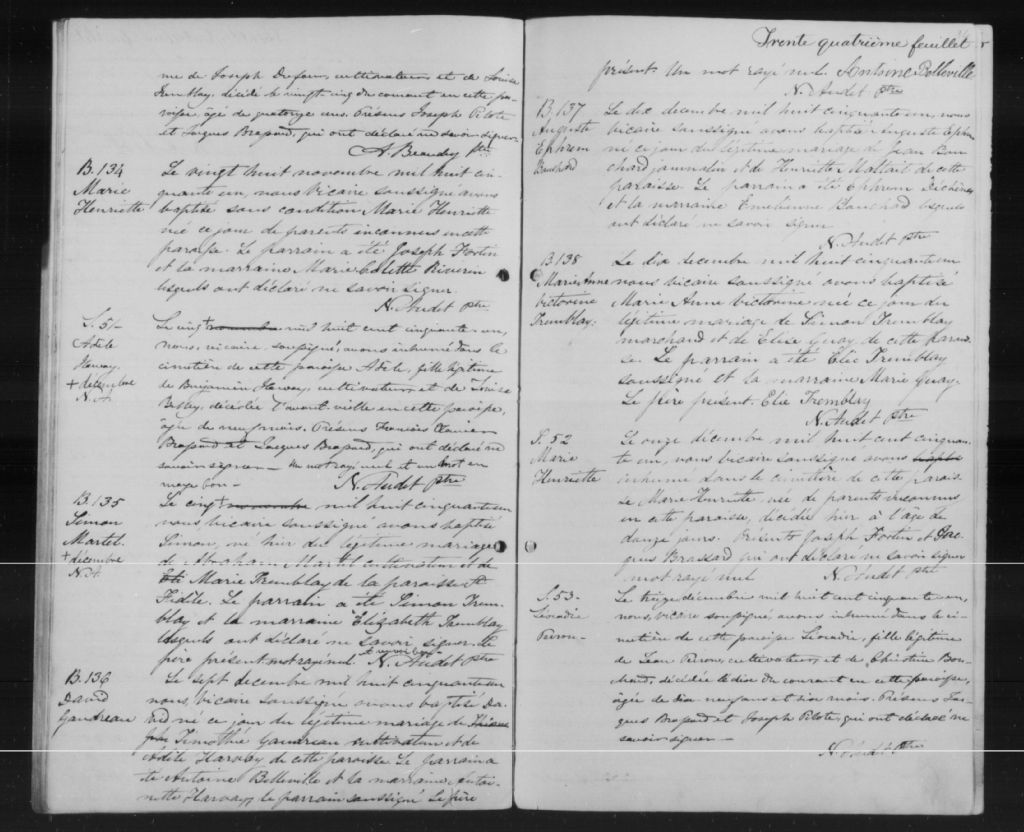 me de Joseph Dufour, cultivateur et de Louise
Tremblay, décédé le vingt cinq du courant en cette pa-
roisse, âgé de quatorze ans. Présens Joseph Pilote
et Jacques Brassard, qui ont déclaré ne savoir signer
A. Beaudry ptre
B. 134
Marie
Henriette
Le vingt huit novembre mil huit cin-
quante un, nous vicaire soussigné avons
baptisé sous condition Marie Henriette
née ce jour de parents inconnus en cette
paroisse. Le parrain a été Joseph Fortin
et la marraine Marie Colette Riverin
lesquels ont déclaré ne savoir signer.
N. Audet ptre
S. 51
Adèle
Harvey.
+ décembre
N. A.
Le cinq + novembre mil huit cent cinquante un,
nous, vicaire, soussigné, avons inhumé dans le
cimetière de cette paroisse Adèle, fille légitime
de Benjamin Harvey, cultivateur, et de Louise
décédée l'avant-veille en cette paroisse,
âgée de neuf mois. Présens François
Brassard et Jacques Brassard, qui ont déclaré ne
savoir signer - Un mot rayé nul et un mot en
marge bon -
N. Audet ptre
B. 135
Simon
Martel.
+ décembre
N. A.
Le cinq + novembre mil huit cinquante un
nous vicaire soussigné avons baptisé
Simon, né hier du légitime mariage
de Abraham Martel cultivateur et de
Marie Tremblay de la paroisse St
Fidèle. Le parrain a été Simon Trem-
blay et la marraine Elizabeth Tremblay
lesquels ont déclaré ne savoir signer. Le
père présent. mot rayé nul. N. Audet ptre
B. 136
David
Gaudreau
Le sept decembre mil huit cinquante un
nous, vicaire soussigné avons baptisé Da-
vid né ce jour du légitime mariage de
Timothée Gaudreau cultivateur et de
Harvay de cette paroisse. Le parrain a
été Antoine Belleville et la marraine Antoi-
nette Harvay, le parrain soussigné Le père
Trente quatrième feuillet
présent. Un mot rayé nul. Antoine Belleville
N. Audet ptre
B. 137
Auguste
Ephrem
Bouchard
Le dix decembre mil huit cinquante un, nous
vicaire soussigné avons baptisé Auguste Ephrem
né ce jour du légitime mariage de Jean Bou-
chard journalier et de Henriette Maltait de cette
paroisse. Le parrain a été Ephrem Déchêne
et la marraine Emelienne Bouchard lesquels
ont déclaré ne savoir signer
N. Audet ptre
B. 138
Marie Anne
Victorine
Tremblay.
Le dix decembre mil huit cinquante un
nous vicaire soussigné avons baptisé
Marie Anne Victorine née ce jour du
légitime mariage de Simon Tremblay
marchand et de Elise Guay de cette parois-
se. Le parrain a été Elie Tremblay
soussigné et la marraine Marie Guay.
Le père présent. Elie Tremblay
N. Audet ptre
S. 52
Marie
Henriette
Le onze décembre mil huit cent cinquan-
te un, nous vicaire soussigné avons baptisé
inhumé dans le cimetière de cette parois-
se Marie Henriette née de parents inconnus
en cette paroisse, décédée hier à l'âge de
douze jours. Présents Joseph Fortin et Jac-
ques Brassard qui ont déclaré ne savoir signer
mot rayé nul N. Audet ptre
S. 53
Léocadie
Perron
Le treize décembre mil huit cent cinquante un,
nous, vicaire soussigné, avons inhumé dans le ci-
metière de cette paroisse Léocadie, fille légitime
de Léon Perron, cultivateur, et de Christine Bou-
chard, décédée le dix du courant en cette paroisse,
âgée de dix neuf ans et dix mois. Présens Jac-
ques Brassard et Joseph Pilote, qui ont déclaré ne
savoir signer -
N. Audet ptre